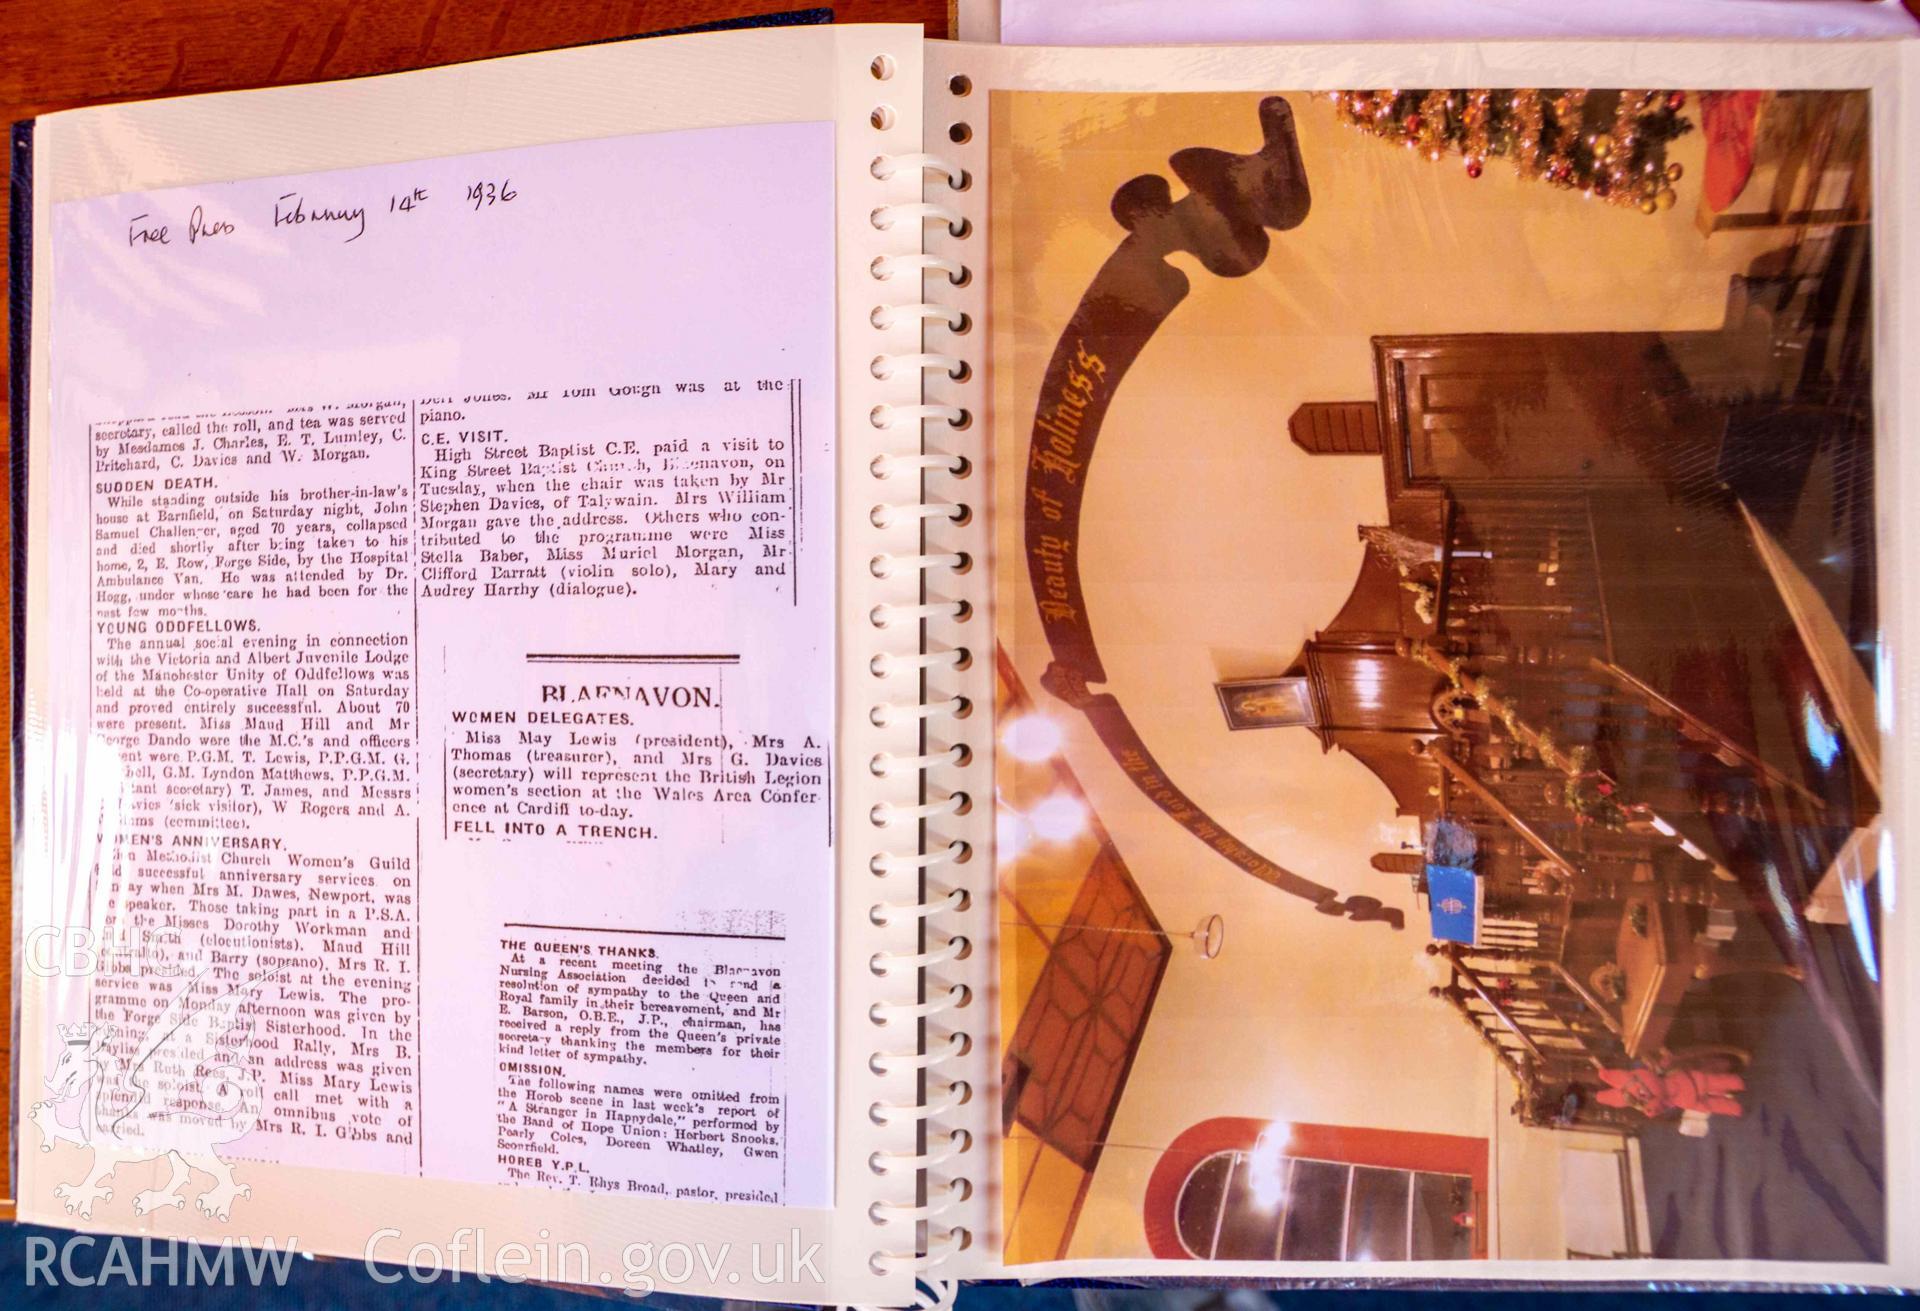 Free Press February 14th 1936
secretary, called the roll, and tea was served
by Mesdames J. Charles, E. T. Lumley, C.
Pritchard, C. Davies and W. Morgan.
SUDDEN DEATH.
While standing outside his brother-in-law's
house at Barnfield, on Saturday night, John
Samuel Challenger, aged 70 years, collapsed
and died shortly after being taken to his
home, 2, E. Row, Forge Side, by the Hospital
Ambulance Van. He was attended by Dr.
Hogg, under whose care he had been for the
past few months.
YOUNG ODDFELLOWS.
The annual social evening in connection
with the Victoria and Albert Juvenile Lodge
of the Manchester Unity of Oddfellows was
held at the Co-operative Hall on Saturday
and proved entirely successful. About 70
were present. Miss Maud Hill and Mr
George Dando were the M.C.'s and officers
were P.G.M. T. Lewis, P.P.G.M. G.
G.M. Lyndon Matthews, P.P.G.M.
secretary) T. James, and Messrs
(sick visitor), W Rogers and A.
(committee).
WOMEN'S ANNIVERSARY.
Methodist Church Women's Guild
successful anniversary services on
when Mrs M. Dawes, Newport, was
speaker. Those taking part in a P.S.A.
the Misses Dorothy Workman and
Smith (elocutionists), Maud Hill
and Barry (soprano). Mrs R. I.
Gibbs presided. The soloist at the evening
service was Miss Mary Lewis. The pro-
gramme on Monday afternoon was given by
the Forge Side Baptist Sisterhood. In the
evening, at a Sisterhood Rally, Mrs B.
Bayliss presided and an address was given
by Mrs Ruth Rees, J.P. Miss Mary Lewis
was the soloist. A roll call met with a
splendid response. An omnibus vote of
thanks was moved by Mrs R. I. Gibbs and
carried.
Jones. Mr Tom Gough was at the
piano.
C.E. VISIT.
High Street Baptist C.E. paid a visit to
King Street Baptist Church, Blaenavon, on
Tuesday, when the chair was taken by Mr
Stephen Davies, of Talywain. Mrs William
Morgan gave the address. Others who con-
tributed to the programme were Miss
Stella Baber, Miss Muriel Morgan, Mr
Clifford Parratt (violin solo), Mary and
Audrey Harrhy (dialogue).
BLAENAVON.
WOMEN DELEGATES.
Miss May Lewis (president), Mrs A.
Thomas (treasurer), and Mrs G. Davies
(secretary) will represent the British Legion
women's section at the Wales Area Confer-
ence at Cardiff to-day.
FELL INTO A TRENCH.
THE QUEEN'S THANKS.
At a recent meeting the Blaenavon
Nursing Association decided to send a
resolution of sympathy to the Queen and
Royal family in their bereavement, and Mr
E. Barson, O.B.E., J.P., chairman, has
received a reply from the Queen's private
secretary thanking the members for their
kind letter of sympathy.
OMISSION.
The following names were omitted from
the Horeb scene in last week's report of
"A Stranger in Happydale," performed by
the Band of Hope Union: Herbert Snooks,
Pearly Coles, Doreen Whatley, Gwen
Scourfield.
HOREB Y.P.L.
The Rev. T. Rhys Broad, pastor, presided
Worship the Lord in the
Beauty of Holiness
CBHC
RCAHMW Coflein.gov.uk